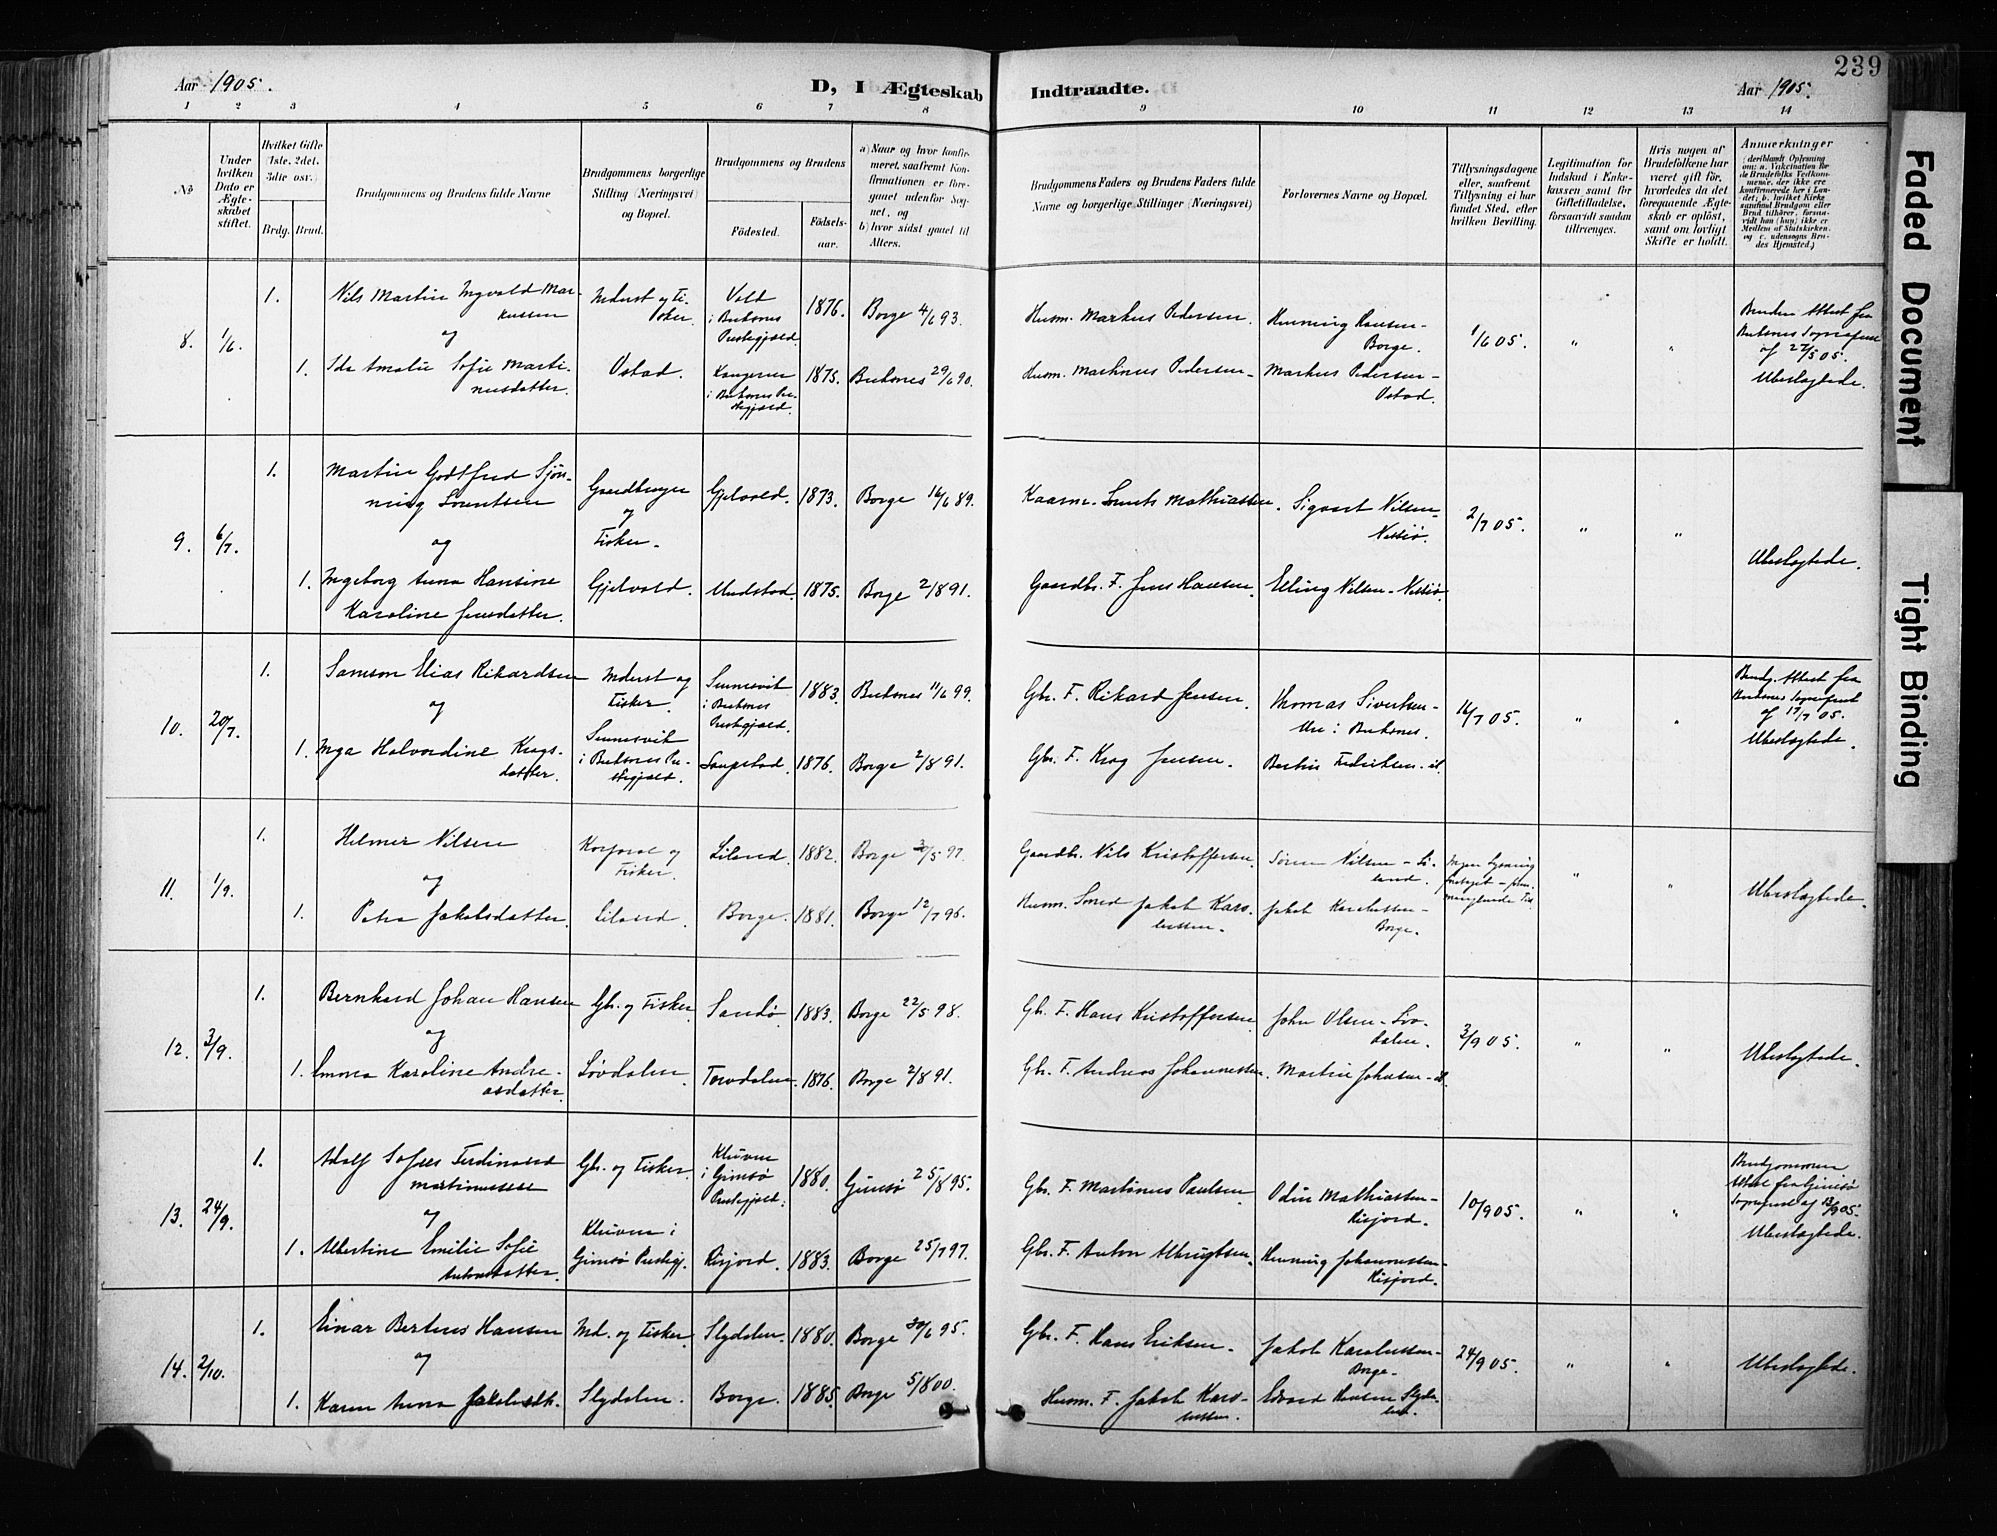 Aar 1905.
D, I Ægteskab Indtraadte.
Aar 1905.
239
1 2 3 4 5 6 7 8 9 10 11 12 13 14
No
Under hvilken Dato er Ægteskabet stiftet.
Hvilket Gifte (1ste, 2det, 3die osv.)
Brdg. Brud.
Brudgommens og Brudens fulde Navne
Brudgommens borgerlige Stilling (Næringsvei) og Bopæl.
Brudgommens og Brudens
Födested.
Födsels-aar.
a) Naar og hvor konfirmeret, saafremt Konfirmationen er foregaaet udenfor Sognet, og
b) hvor sidst gaaet til Alters.
Brudgommens Faders og Brudens Faders fulde Navne og borgerlige Stillinger (Næringsvei)
Forlovernes Navne og Bopæl.
Tillysningsdagene eller, saafremt Tillysning ei har fundet Sted, efter hvilken Bevilling.
Legitimation for Indskud i Enkekassen samt for Giftetilladelse, forsaavidt saadan tiltrænges.
Hvis nogen af Brudefolkene har været gift för, hvorledes da det foregaaende Ægteskab er oplöst, samt om lovligt Skifte er holdt.
Anmerkninger
8. 1/6.
1. Nils Martin Ingvald Mar-
kussen
og
1. Ida Amalie Sofie Marti-
nusdatter.
Inderst og Fi-
sker.
Ustad.
Vold
i Buksnes
Prestegjæld.
1876. Borge 4/6 93.
i Buksnes Pre-
stegjæld.
1875. Buksnes 29/6 90.
Husm. Markus Pedersen.
Husm. Martinus Pedersen
Henning Hansen-
Borge.
Markus Pedersen-
Ustad.
1/6 05. " "
Brudens Attest fra
Buksnes Sognepræst
af 27/5 05.
Ubeslægtede.
9. 6/7.
1. Martin Godtfred Sjön-
ning Lorentsen
og
1. Ingeborg Anna Hansine
Karoline Jensdatter.
Gaardbruger
og
Fisker.
Gjelvold.
Gjelvold. 1873. Borge 16/6 89.
Mudstad. 1875. Borge 2/8 91.
Kaarm. Lorents Mathiassen.
Gaardbr. F. Jens Hansen.
Sigvart Nilsen-
Elling Nilsen
2/7 05. " "
Ubeslægtede.
10. 20/7.
1. Samson Elias Rikardsen
og
1. Inga Halvordine Krogs-
datter.
Inderst og
Fisker.
Sennesvik
i Buksnes Pre-
stegjæld.
Sennesvik
i Buksnes
Prestegjæld.
1883. Buksnes 11/6 99.
Saupstad. 1876. Borge 2/8 91.
Gbr. F. Rikard Jensen.
Gbr. F. Krog Jensen.
Thomas Sivertsen-
Ure i Buksnes.
Bertin Fredriksen
16/7 05. " "
Brudg. Attest fra
Buksnes Sognepræst
af 17/7 05.
Ubeslægtede.
11. 1/9.
1. Helmer Nilsen
og
1. Petra Jakobsdatter.
Korporal og
Fisker.
Liland.
Liland. 1882. Borge 30/5 97.
Borge. 1881. Borge 12/7 96.
Gaardbr. Nils Kristoffersen.
Husm. Jakob Karo-
liussen.
Sören Nilsen - Li-
land.
Jakob Karoliussen-
Borge.
Ingen Lysning
" "
Ubeslægtede.
12. 3/9.
1. Bernhard Johan Hansen
og
1. Emma Karoline Andre-
asdatter.
Gbr. og Fisker
Lövdalen.
Sandö. 1883. Borge 22/5 98.
Torvdalen. 1876. Borge 2/8 91.
Gbr. F. Hans Kristoffersen
Gbr. F. Andreas Johannessen.
John Olsen - Löv-
dalen.
Martin Johnsen
3/9 05. " "
Ubeslægtede.
13. 24/9.
1. Adolf Sofus Ferdinand
Martinussen
og
1. Albertine Emilie Sofie
Antonsdatter.
Gbr. og Fisker.
Kleiven i
Gimsö Prestegj.
Kleiven
i Gimsö
Prestegjæld.
1880. Gimsö 25/8 95.
Risjord. 1883. Borge 25/7 97.
Gbr. F. Martinus Paulsen.
Gbr. F. Anton Albrigtsen.
Odin Mathiassen-
Risjord.
Henning Johannessen-
Risjord.
10/9 05. " "
Brudgommens
Attest fra Gimsö
Sognepræst af 13/9 05.
Ubeslægtede.
14. 2/10.
1. Einar Bertheus Hansen
og
1. Karen Anna Jakobsdtr.
Ind. og Fisker
Slydalen.
Slydalen. 1880. Borge 30/6 95.
Borge. 1885. Borge 5/8 00.
Gbr. F. Hans Eriksen.
Husm. F. Jakob Karo-
liussen.
Jakob Karoliussen-
Borge.
Edvard Hansen Slyda-
len.
24/9 05. " "
Ubeslægtede.
Faded Document
Tight Binding